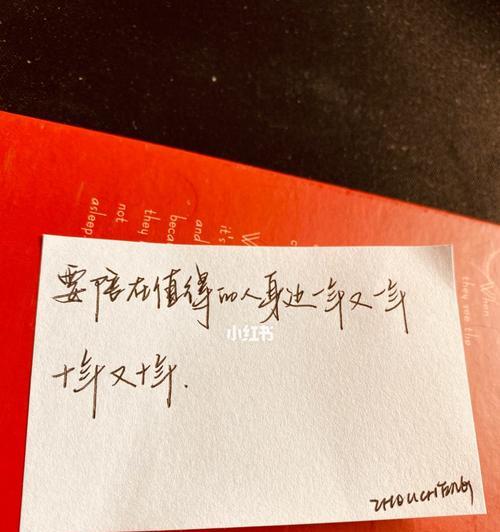 要陪在值得的人身边一年又一年
十年又十年.
小红书
ZHOUCHITENG
When
they see the
it's
and
beca
they
not
asleep